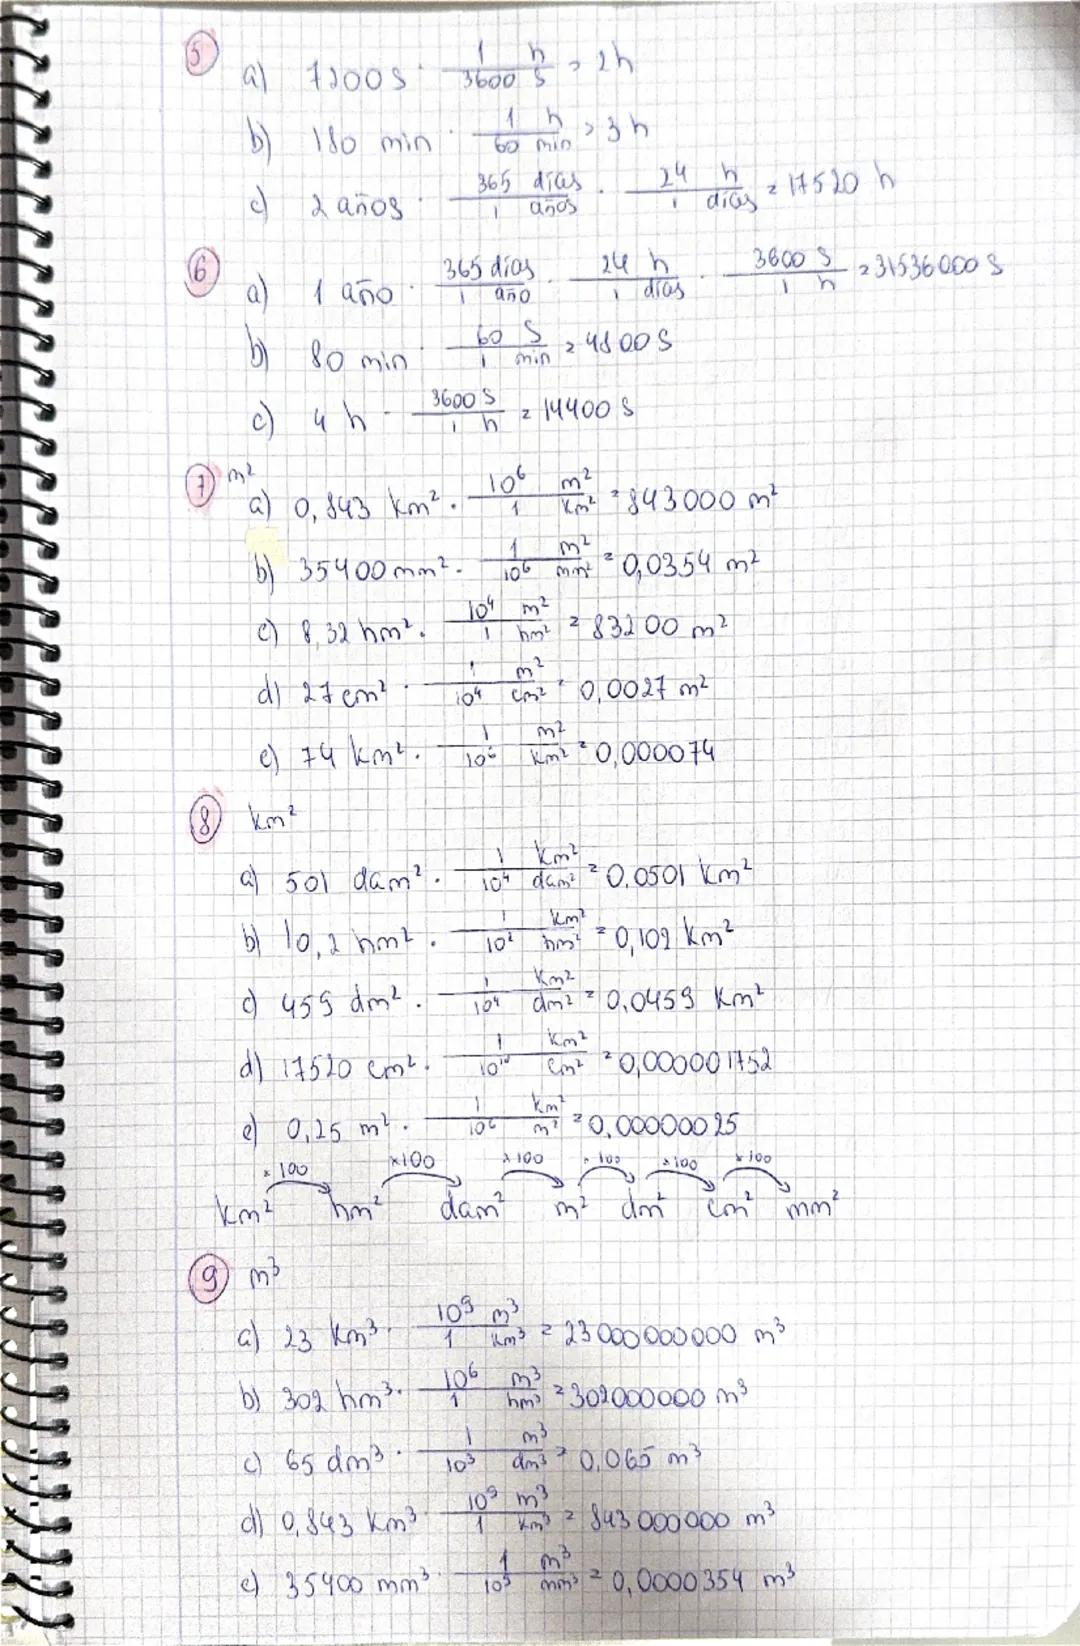 5
a) 7200 s · 1 h / 3600 s = 2 h
b) 180 min · 1 h / 60 min = 3 h
c) 2 años · 365 días / 1 años · 24 h / 1 días = 17520 h
6
a) 1 año · 365 días / 1 año · 24 h / 1 días · 3600 s / 1 h = 31536000 s
b) 80 min · 60 s / 1 min = 4800 s
c) 4 h · 3600 s / 1 h = 14400 s
7 m²
a) 0,843 km² · 10⁶ m² / 1 km² = 843000 m²
b) 35400 mm² · 1 m² / 10⁶ mm² = 0,0354 m²
c) 8,32 hm² · 10⁴ m² / 1 hm² = 83200 m²
d) 27 cm² · 1 m² / 10⁴ cm² = 0,0027 m²
e) 74 km² · 1 m² / 10⁶ km² = 0,000074
8 km²
a) 501 dam² · 1 km² / 10⁴ dam² = 0,0501 km²
b) 10,2 hm² · 1 km² / 10² hm² = 0,102 km²
c) 459 dm² · 1 km² / 10⁴ dm² = 0,0459 km²
d) 17520 cm² · 1 km² / 10¹⁰ cm² = 0,000001752
e) 0,25 m² · 1 km² / 10⁶ m² = 0,00000025
×100 ×100 ×100 ×100 ×100 ×100
km² hm² dam² m² dm² cm² mm²
9 m³
a) 23 km³ · 10⁹ m³ / 1 km³ = 23000000000 m³
b) 302 hm³ · 10⁶ m³ / 1 hm³ = 302000000 m³
c) 65 dm³ · 1 m³ / 10³ dm³ = 0,065 m³
d) 0,843 km³ · 10⁹ m³ / 1 km³ = 843000000 m³
e) 35400 mm³ · 1 m³ / 10⁹ mm³ = 0,0000354 m³